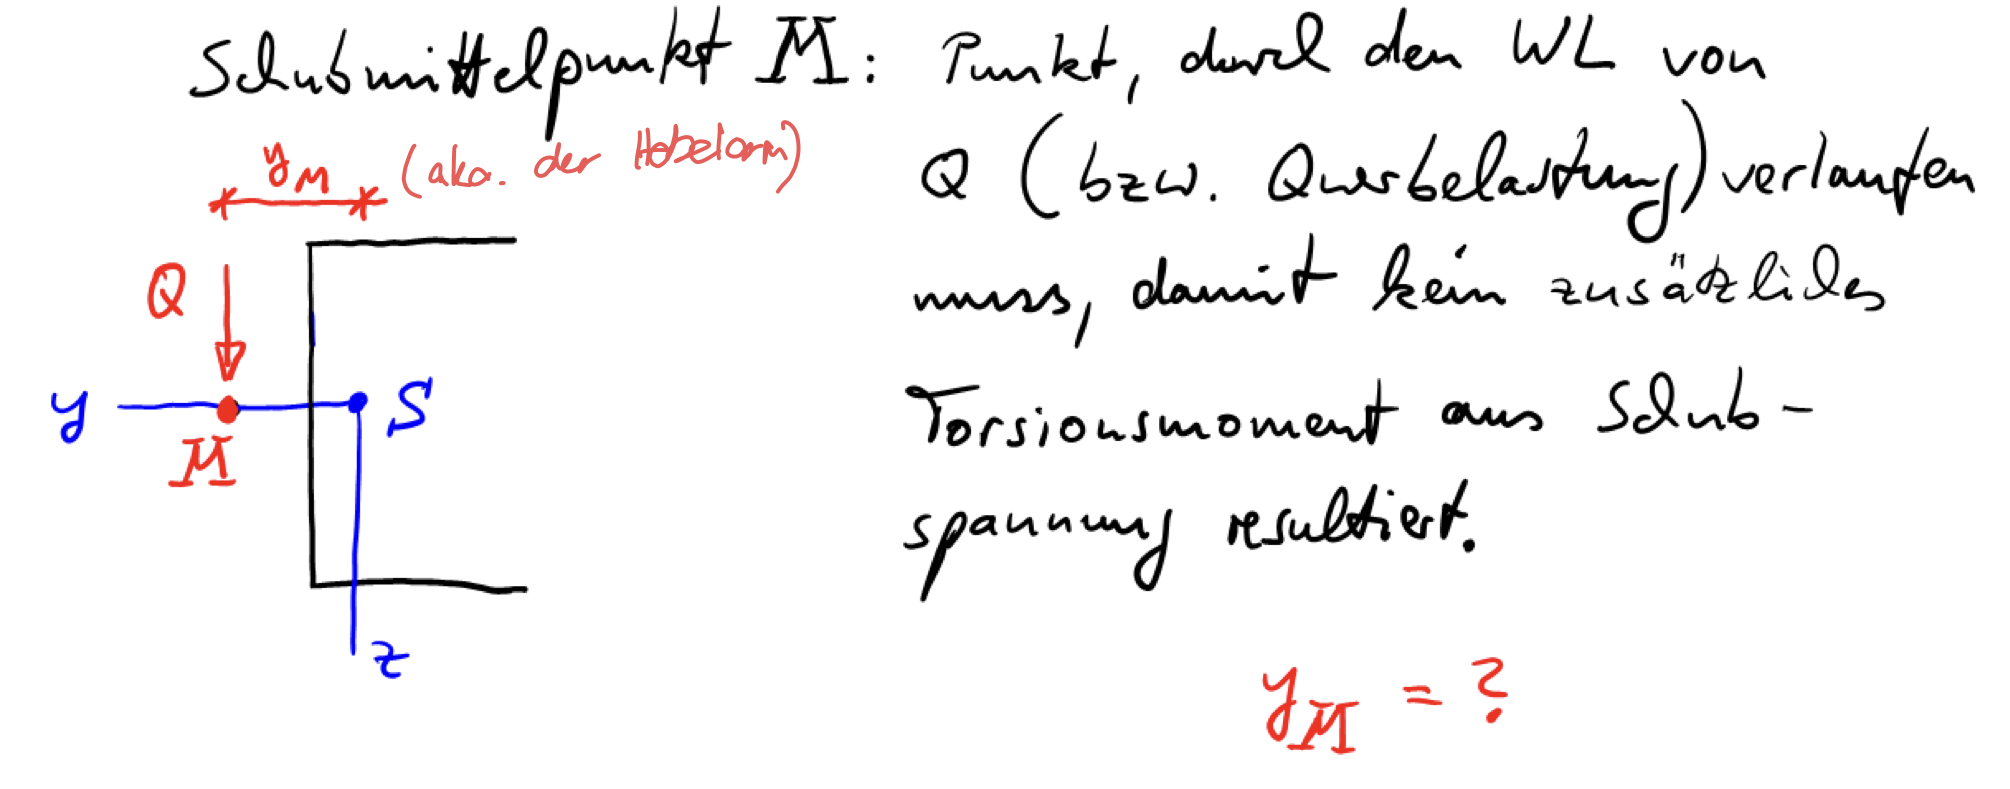 Schubmittelpunkt M: Punkt, durch den WL von
Q (bzw. Querbelastung) verlaufen
muss, damit kein zusätzliches
Torsionsmoment aus Schub-
spannung resultiert.
y_M (aka. der Hebelarm)
Q
y
S
M
z
y_M = ?